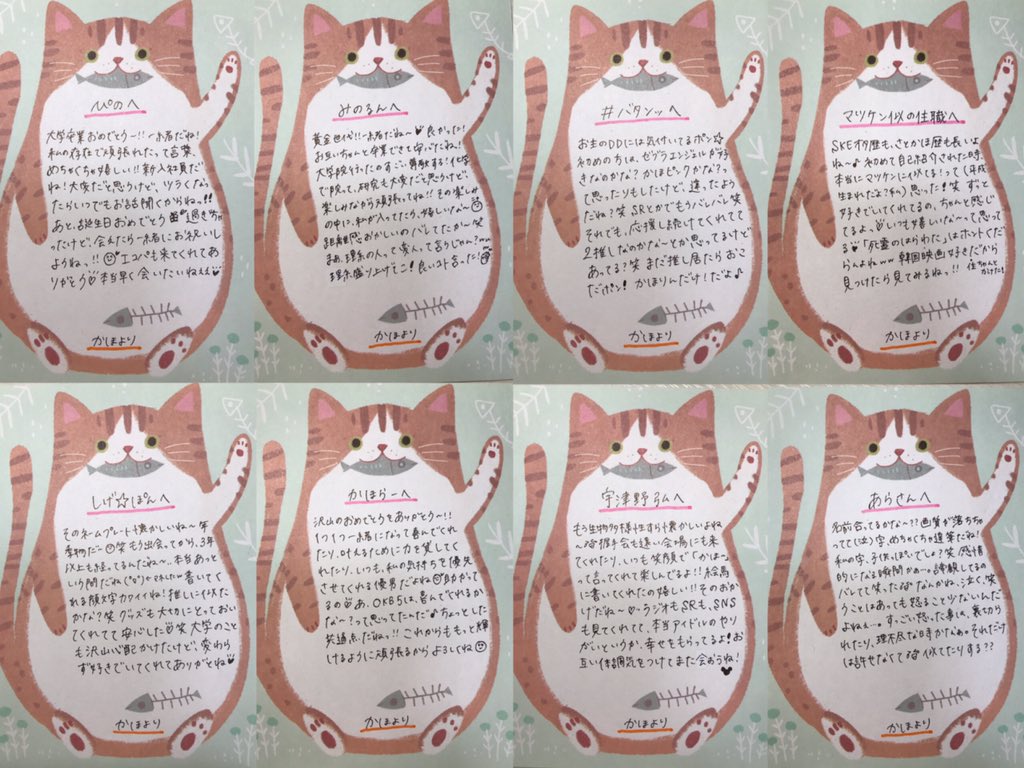 ぴのへ
大学卒業おめでとう〜!!一緒だね!
私の存在で頑張れたって言葉、
めちゃくちゃ嬉しい!!新入社員だ
ね!大変だと思うけど、ツラくなっ
たらいつでもお話聞くからね。!!
あと、誕生日おめでとう 過ぎちゃ
ったけど、会えたら一緒にお祝いし
ようねっ!! エコパも来てくれてあ
りがとう♡本当早く会いたいねぇぇ
かほより
みのるんへ
黄金世代!!一緒だね〜 良かった!
お互いちゃんと卒業できて安心だね!!
大学院行ったのすごい尊敬する!化学
で院って、研究も大変だと思うけど、
楽しみながら頑張ってね!!その楽しみ
の中に、私が入ってたら、嬉しいな〜
距離感おかしいのバレてたか〜笑
まあ、理系の人って変人って言うじゃん?www
理系盛り上げてこ!良いコト言った!
かほより
#バタンッへ
お主のDDには気付いてるポン☆
初めの方は、ゼブラエンジェルが好
きなのかな?かほピンクかな?っ
て思ったりもしたけど、違ったよう
だね?笑 SRとかでもうバレバレ笑
それでも、応援し続けてくれてて
2推しなのかな〜とか思ってるけど
あってる?笑 まだ推し居たらおこ
だポン!かほりんだけ!だよ♪
かほより
マツケン似の住職へ
SKEオタ歴も、さとかほ歴も長いよ
ね〜♪初めて自己紹介された時、
本当にマツケンに似てる!って(平成
生まれだよ?私)思った!笑 ずっと
好きでいてくれてるの、ちゃんと感じ
てるよ。いつも嬉しいな〜って思っ
てる 「死霊のはらわた」はホントくだ
らんよねww 韓国映画好きだから
見つけたら見てみるねっ!!
住ちゃんと
かけた!
かほより
しげ☆ぽんへ
そのネームプレート懐かしいね〜年
季物だ〜 笑 もう出会ってから、3年
以上も経ってるんだね〜、本当あっと
いう間だね 書いてく
れる顔文字カワイイね!推しに似た
かな?笑 グッズも大切にとっておい
てくれてて安心した 笑 大学のこと
も沢山心配かけたけど、変わら
ず好きでいてくれてありがとね
かほより
かほらーへ
沢山のおめでとうをありがとう〜!!
1つ1つ一緒になって喜んでくれ
たり、叶えるために力を貸してく
れたり、いつも、私の気持ちを優先
させてくれる優男だよね 助かって
るの あ、OKB5は、喜んでくれるか
な〜?って思ってたんだ♪ちょっとした
共通点だねっ!!これからももっと輝
けるように頑張るからよろしくね
かほより
宇津野弘へ
もう生物多様性すら懐かしいよね
〜 握手会も遠い会場にも来
てくれたり、いつも笑顔で「かほ〜」
って言ってくれて楽しんでるよ!!絵馬
に書いてくれたの嬉しい!!そのおか
げだね〜♡ラジオもSRも、SNS
も見てくれてて、本当アイドルのやり
がいというか、幸せをもらってるよ!お
互い体調気をつけてまた会おうね!
かほより
あらさんへ
名前合ってるかな〜??画質が落ちちゃ
ってて(泣)字、めちゃくちゃ達筆だね!
私の字、子供っぽいでしょ?笑 感情
的になる瞬間かぁ〜。 してるの
バレてて笑った なんかね、泣く、笑
うことはあっても怒ること少ないんだ
よねぇ…。すっごい怒った事は、裏切ら
れたり、理不尽な時かなぁ。それだけ
は許せなくて 似てたりする??
かほより